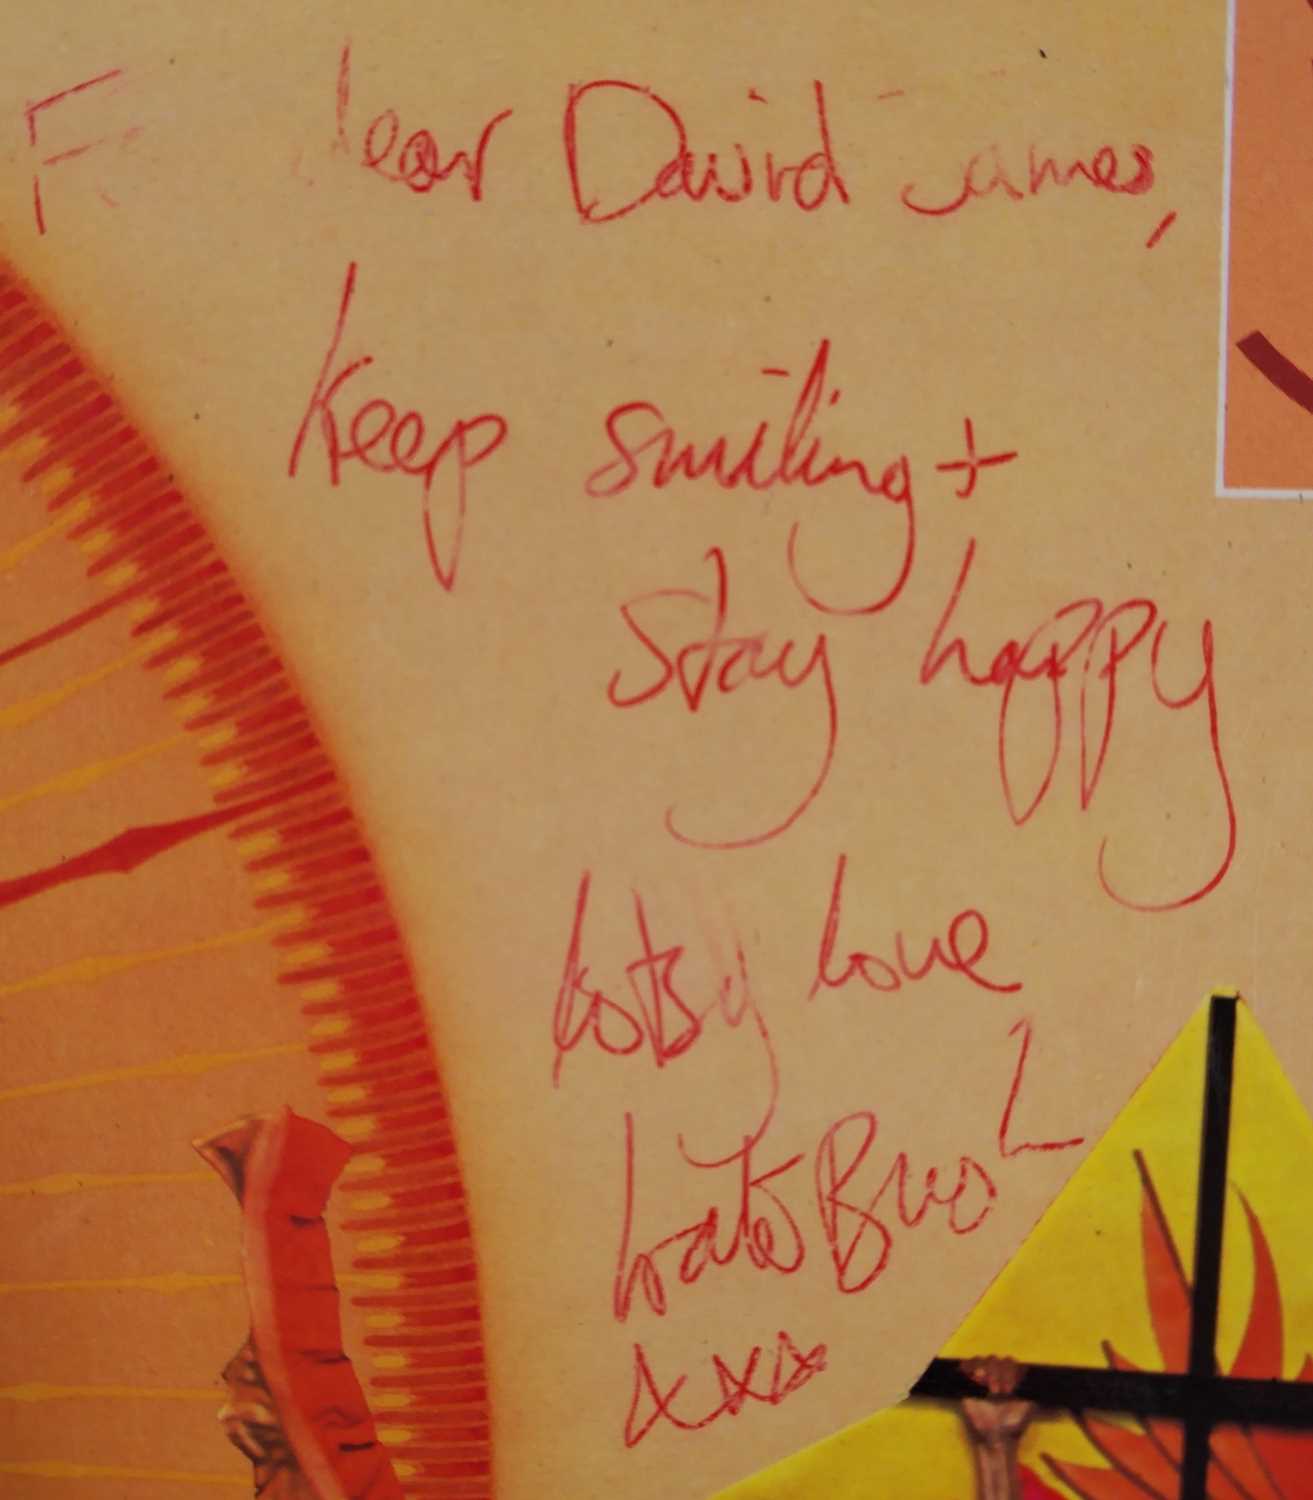 For dear David James,
Keep smiling +
stay happy
Lots of love
Kate Bush
xxx